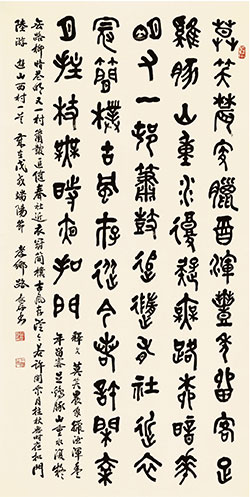 莫笑農家臘酒渾豐年留客足
雞豚山重水複疑無路柳暗花
明又一邨簫鼓追隨春社近衣
冠簡樸古風存從今若許閑乘
月拄杖無時夜扣門
釋文 莫笑農家臘酒渾豐
年留客足雞豚山重水復疑
無路柳暗花明又一村簫鼓追隨春社近衣冠簡樸古風存從今若許閑乘月拄杖無時夜扣門
陸游 遊山西村一首 歲在戊戌端陽節 孝鄉 路